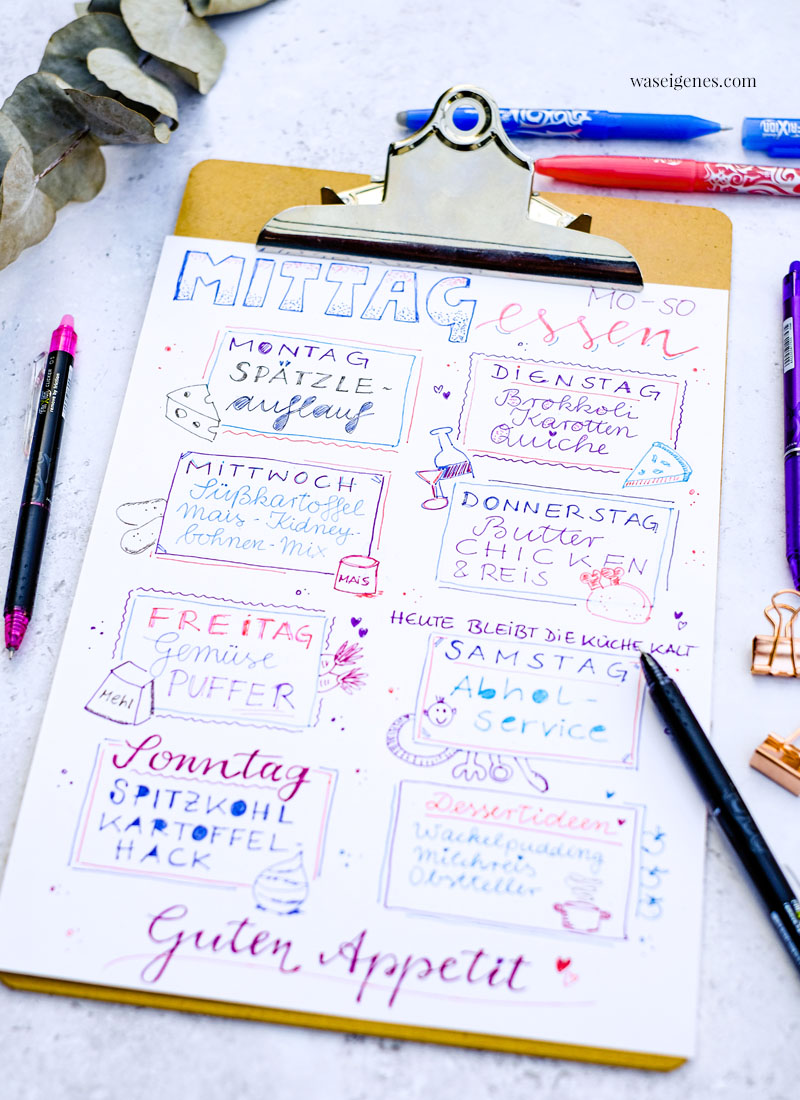 waseigenes.com
FRIXION
MITTAG
essen
MO-SO
MONTAG
SPÄTZLE-
auflauf
DIENSTAG
Brokkoli
Karotten
Quiche
MITTWOCH
Süßkartoffel
Mais-Kidney-
bohnen-Mix
MAIS
DONNERSTAG
Butter
CHICKEN
& REIS
FREITAG
Gemüse
PUFFER
Mehl
HEUTE BLEIBT DIE KÜCHE KALT
SAMSTAG
Abhol-
service
Sonntag
SPITZKOHL
KARTOFFEL
HACK
Dessertideen
Wackelpudding
Milchreis
Obstteller
Guten Appetit